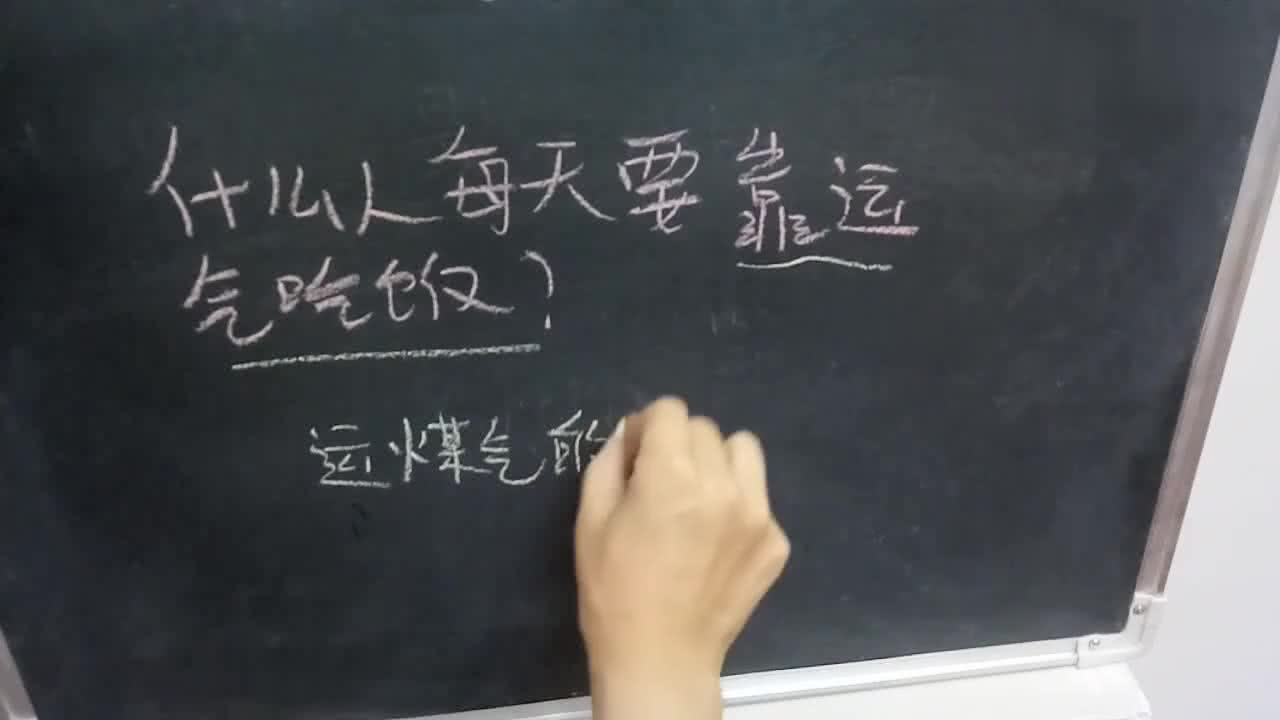 什么人每天要靠运
气吃饭?
运煤气的